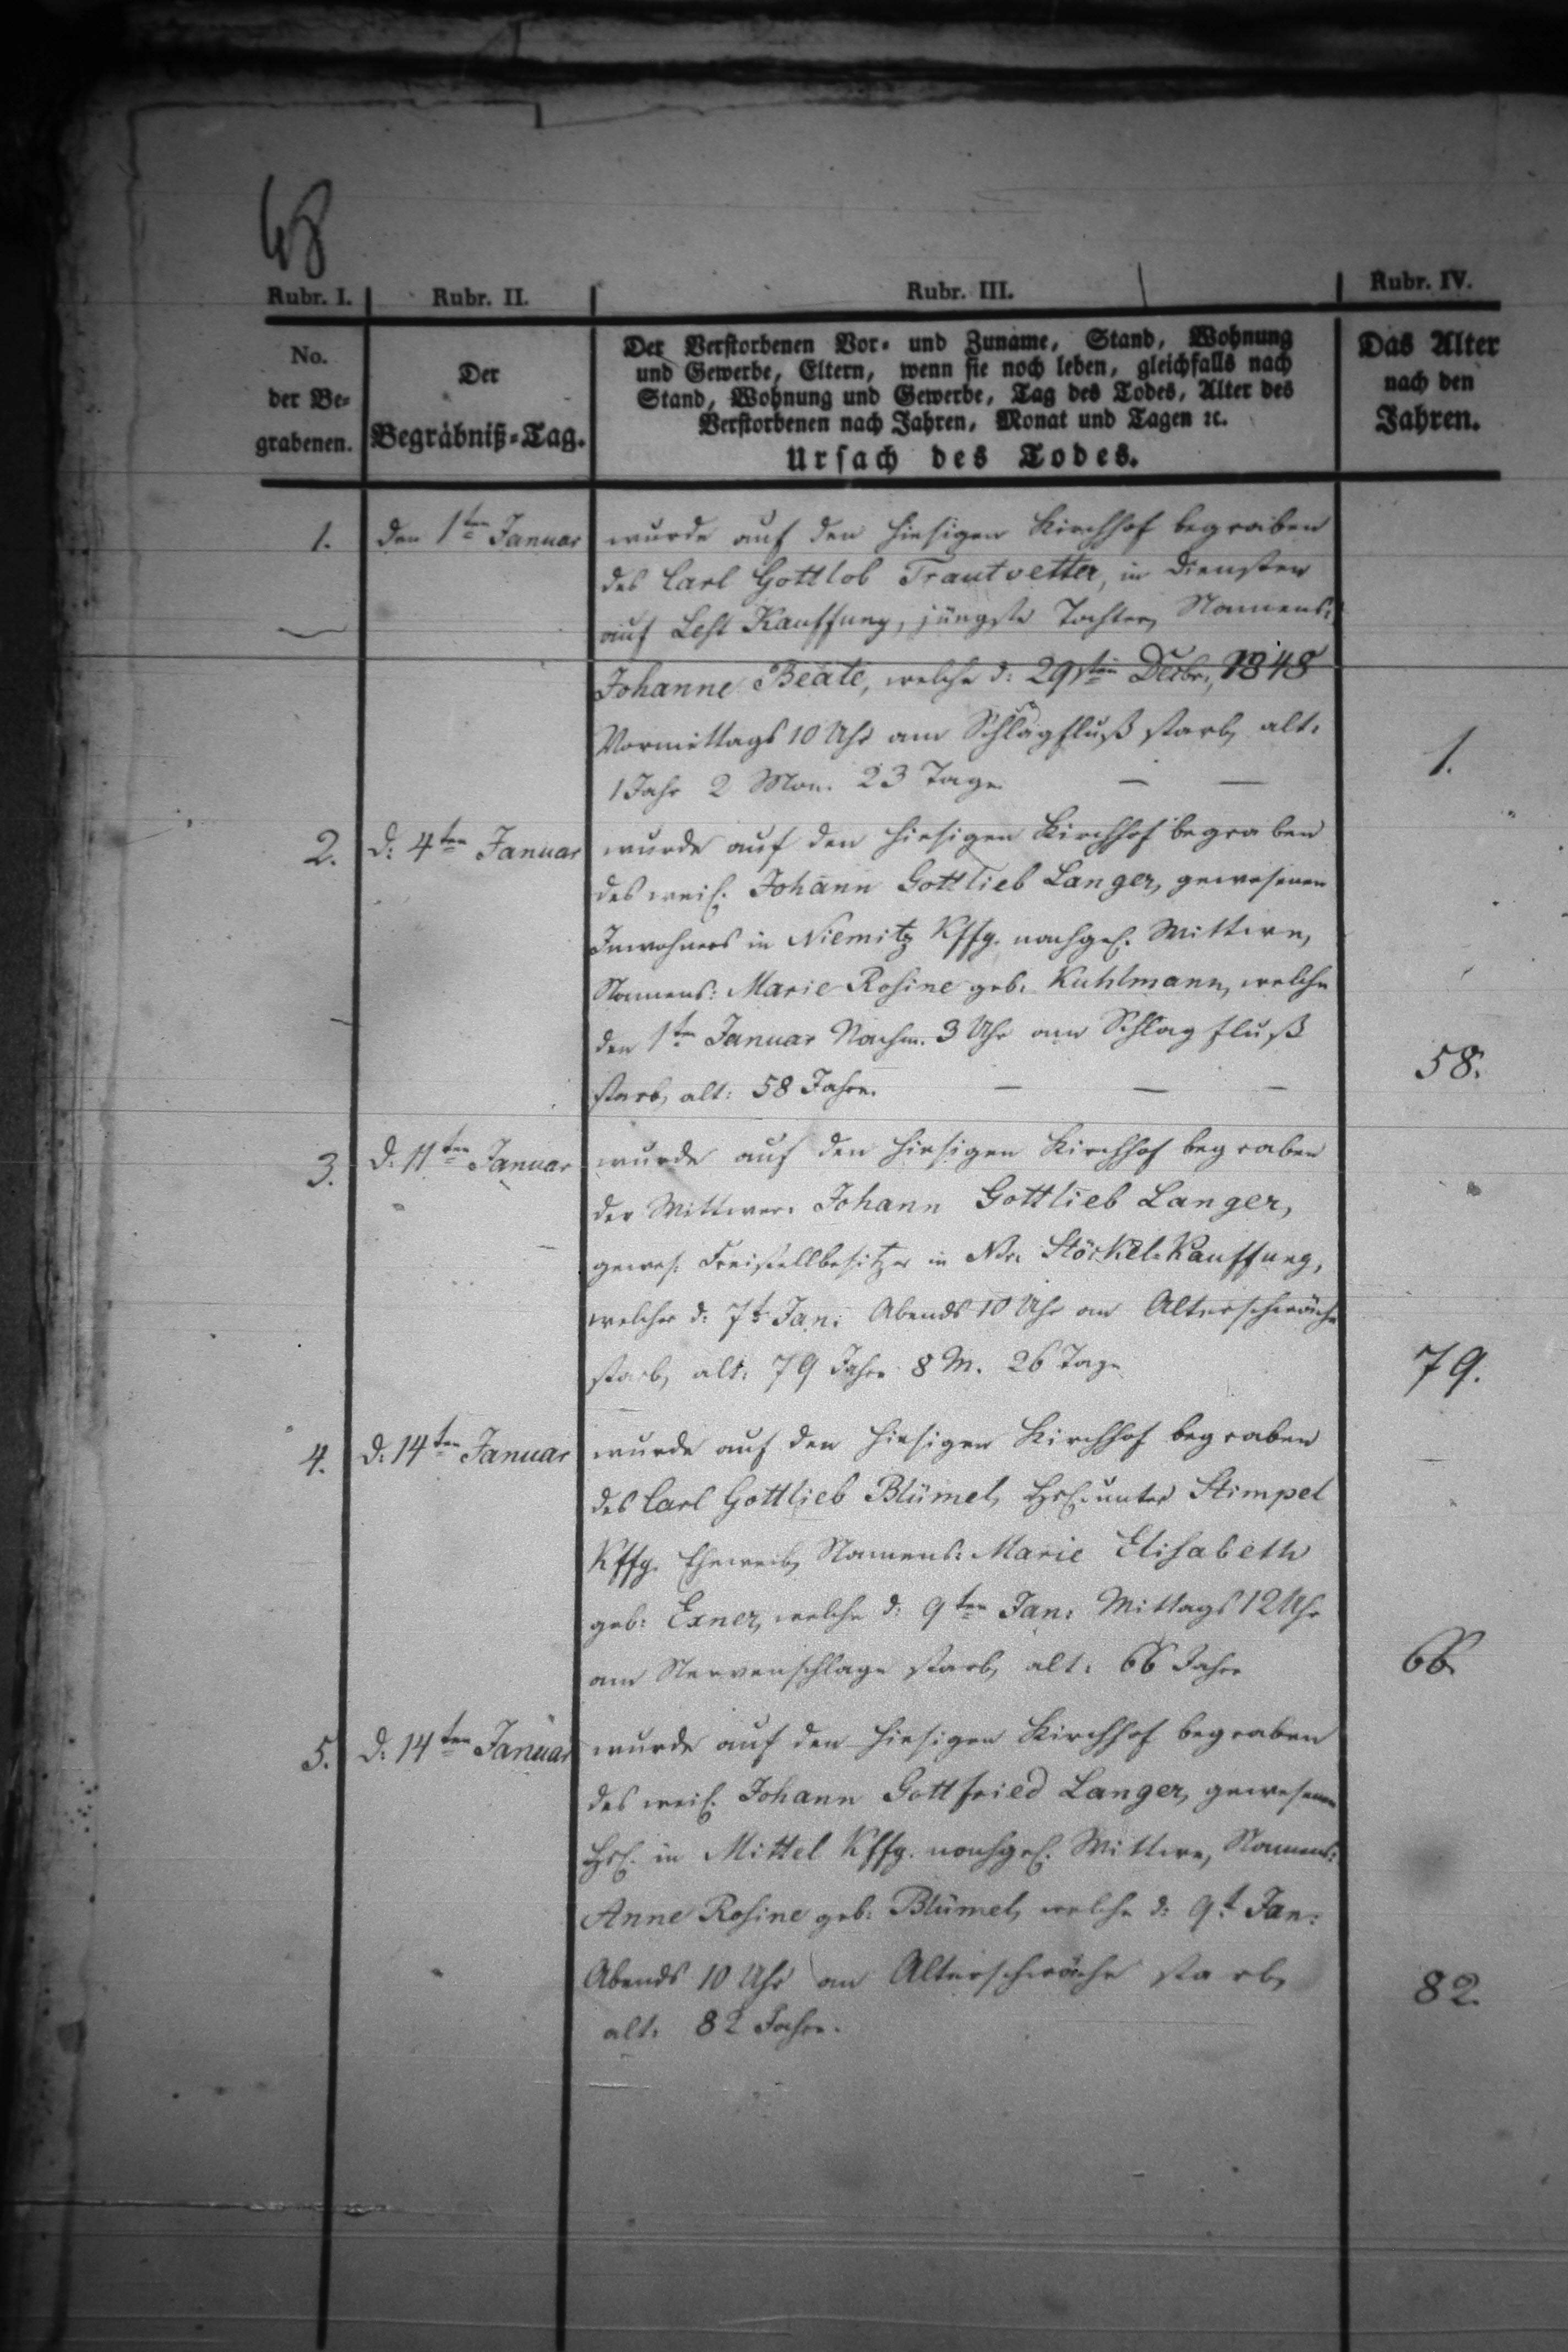 48
Rubr. I. Rubr. II. Rubr. III. Rubr. IV.
No.
der Be-
grabenen.
Der
Begräbniß-Tag.
Der Verstorbenen Vor- und Zuname, Stand, Wohnung
und Gewerbe, Eltern, wenn sie noch leben, gleichfalls nach
Stand, Wohnung und Gewerbe, Tag des Todes, Alter des
Verstorbenen nach Jahren, Monat und Tagen ꝛc.
Ursach des Todes.
Das Alter
nach den
Jahren.
1. den 1ten Januar wurde auf den hiesigen Kirchhof begraben
des Carl Gottlob Trautvetter, in Diensten
auf Lest Kauffung, jüngste Tochter, Namens:
Johanne Beate, welche d: 29sten Decbr, 1848
Vormittags 10 Uhr am Schlagfluß starb, alt:
1 Jahr 2 Mon. 23 Tage — — 1.
2. d: 4ten Januar wurde auf den hiesigen Kirchhof begraben
des weil. Johann Gottlieb Langer, gewesenen
Inwohners in Niemitz Kffg. nachgel. Wittwe,
Namens: Marie Rosine geb. Kuhlmann, welche
den 1ten Januar Nachm. 3 Uhr am Schlagfluß
starb, alt: 58 Jahre. — — — 58.
3. d. 11ten Januar wurde auf den hiesigen Kirchhof begraben
der Wittwer: Johann Gottlieb Langer,
gewes. Freistellbesitzer in Nr. Stöckel-Kauffung,
welcher d: 7t Jan: Abends 10 Uhr an Alterschwäche
starb, alt: 79 Jahre 8 M. 26 Tage 79.
4. d: 14ten Januar wurde auf den hiesigen Kirchhof begraben
des Carl Gottlieb Blümel, Hsl. unter Stimpel
Kffg. Eheweib, Namens: Marie Elisabeth
geb: Exner, welche d: 9ten Jan: Mittags 12 Uhr
am Nervenschlage starb, alt: 66 Jahre 66.
5. d: 14ten Januar wurde auf den hiesigen Kirchhof begraben
des weil. Johann Gottfried Langer, gewesenen
Hsl. in Mittel Kffg. nachgel. Wittwe, Namens:
Anne Rosine geb: Blümel, welche d: 9t Jan:
Abends 10 Uhr an Alterschwäche starb,
alt: 82 Jahre. 82.